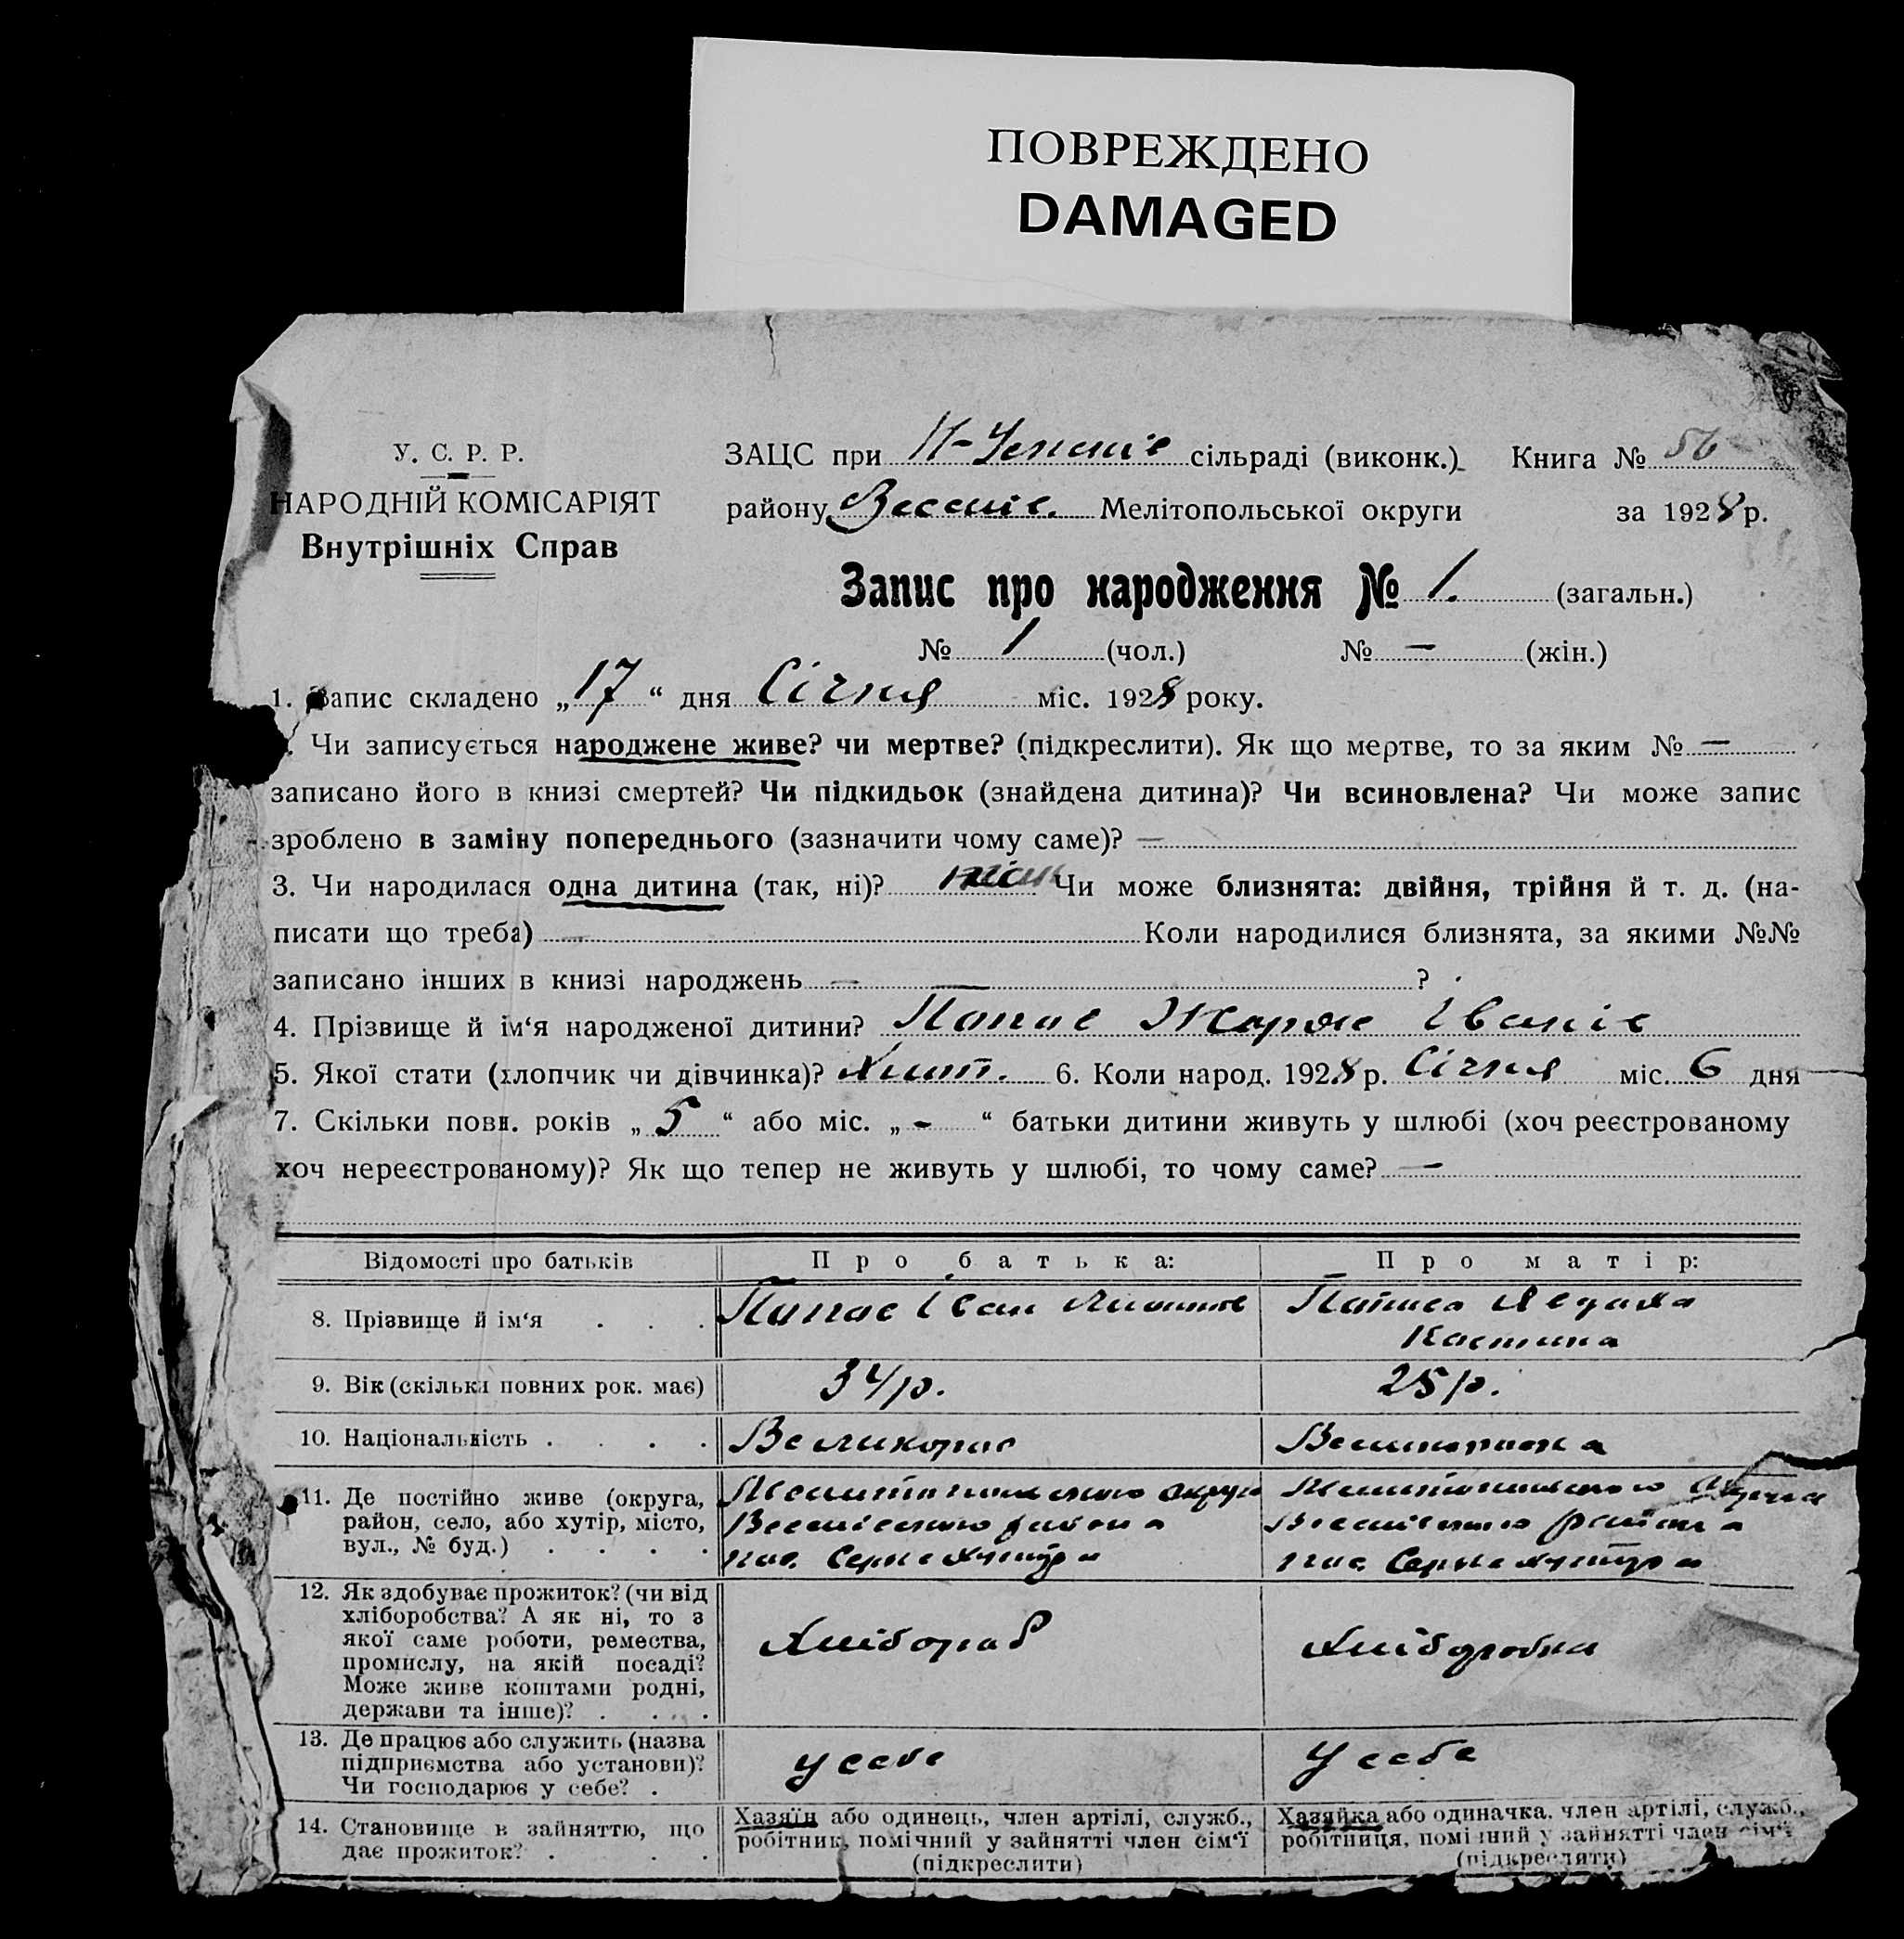 ПОВРЕЖДЕНО
DAMAGED
У. С. Р. Р.
НАРОДНІЙ КОМІСАРІЯТ
Внутрішніх Справ
ЗАЦС при сільраді (виконк.) Книга № 56
району Веселів. Мелітопольської округи за 1928 р.
Запис про народження № 1. (загальн.)
№ 1 (чол.) № — (жін.)
1. Запис складено „ 17 “ дня Січня міс. 1928 року.
. Чи записується народжене живе? чи мертве? (підкреслити). Як що мертве, то за яким № —
записано його в книзі смертей? Чи підкидьок (знайдена дитина)? Чи всиновлена? Чи може запис
зроблено в заміну попереднього (зазначити чому саме)? —
3. Чи народилася одна дитина (так, ні)? Чи може близнята: двійня, трійня й т. д. (на-
писати що треба) — Коли народилися близнята, за якими №№
записано інших в книзі народжень — — ?
4. Прізвище й ім‘я народженої дитини? Іванів
5. Якої стати (хлопчик чи дівчинка)? Хлоп. 6. Коли народ. 1928 р. Січня міс. 6 дня
7. Скільки повн. років „ 5 “ або міс. „ - “ батьки дитини живуть у шлюбі (хоч реєстрованому
хоч нереєстрованому)? Як що тепер не живуть у шлюбі, то чому саме? —
Відомості про батьків Про батька: Про матір:
8. Прізвище й ім‘я . . . Іван
9. Вік (скільки повних рок. має) 34 р. 25 р.
10. Національність . . . . Великорос Великороска
11. Де постійно живе (округа, район, село, або хутір, місто, вул., № буд.) . . . . Мелітопольсько округи Мелітопольсько округи
Веселівсько района Веселівсько района
12. Як здобуває прожиток? (чи від хліборобства? А як ні, то з якої саме роботи, ремества, промислу, на якій посаді? Може живе коштами родні, держави та інше)? . . . . Хлібороб Хліборобка
13. Де працює або служить (назва підприємства або установи)? Чи господарює у себе? . у себе у себе
14. Становище в зайняттю, що дає прожиток? . . . .
Хазяїн або одинець, член артілі, служб., робітник, помічний у зайнятті член сім‘ї (підкреслити)
Хазяйка або одиначка, член артілі, служб., робітниця, помічний у зайнятті член сім‘ї (підкреслити)